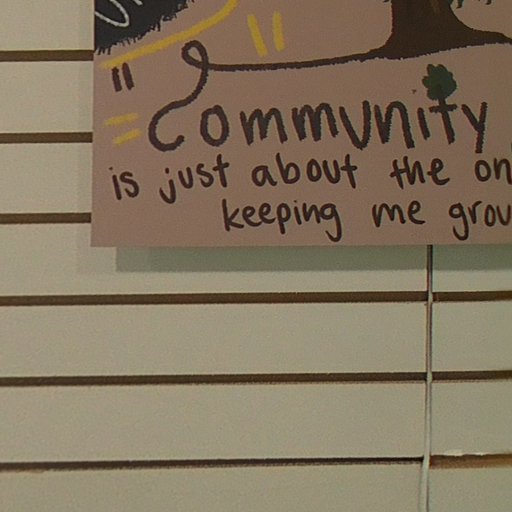 Community
is just about the
keeping me